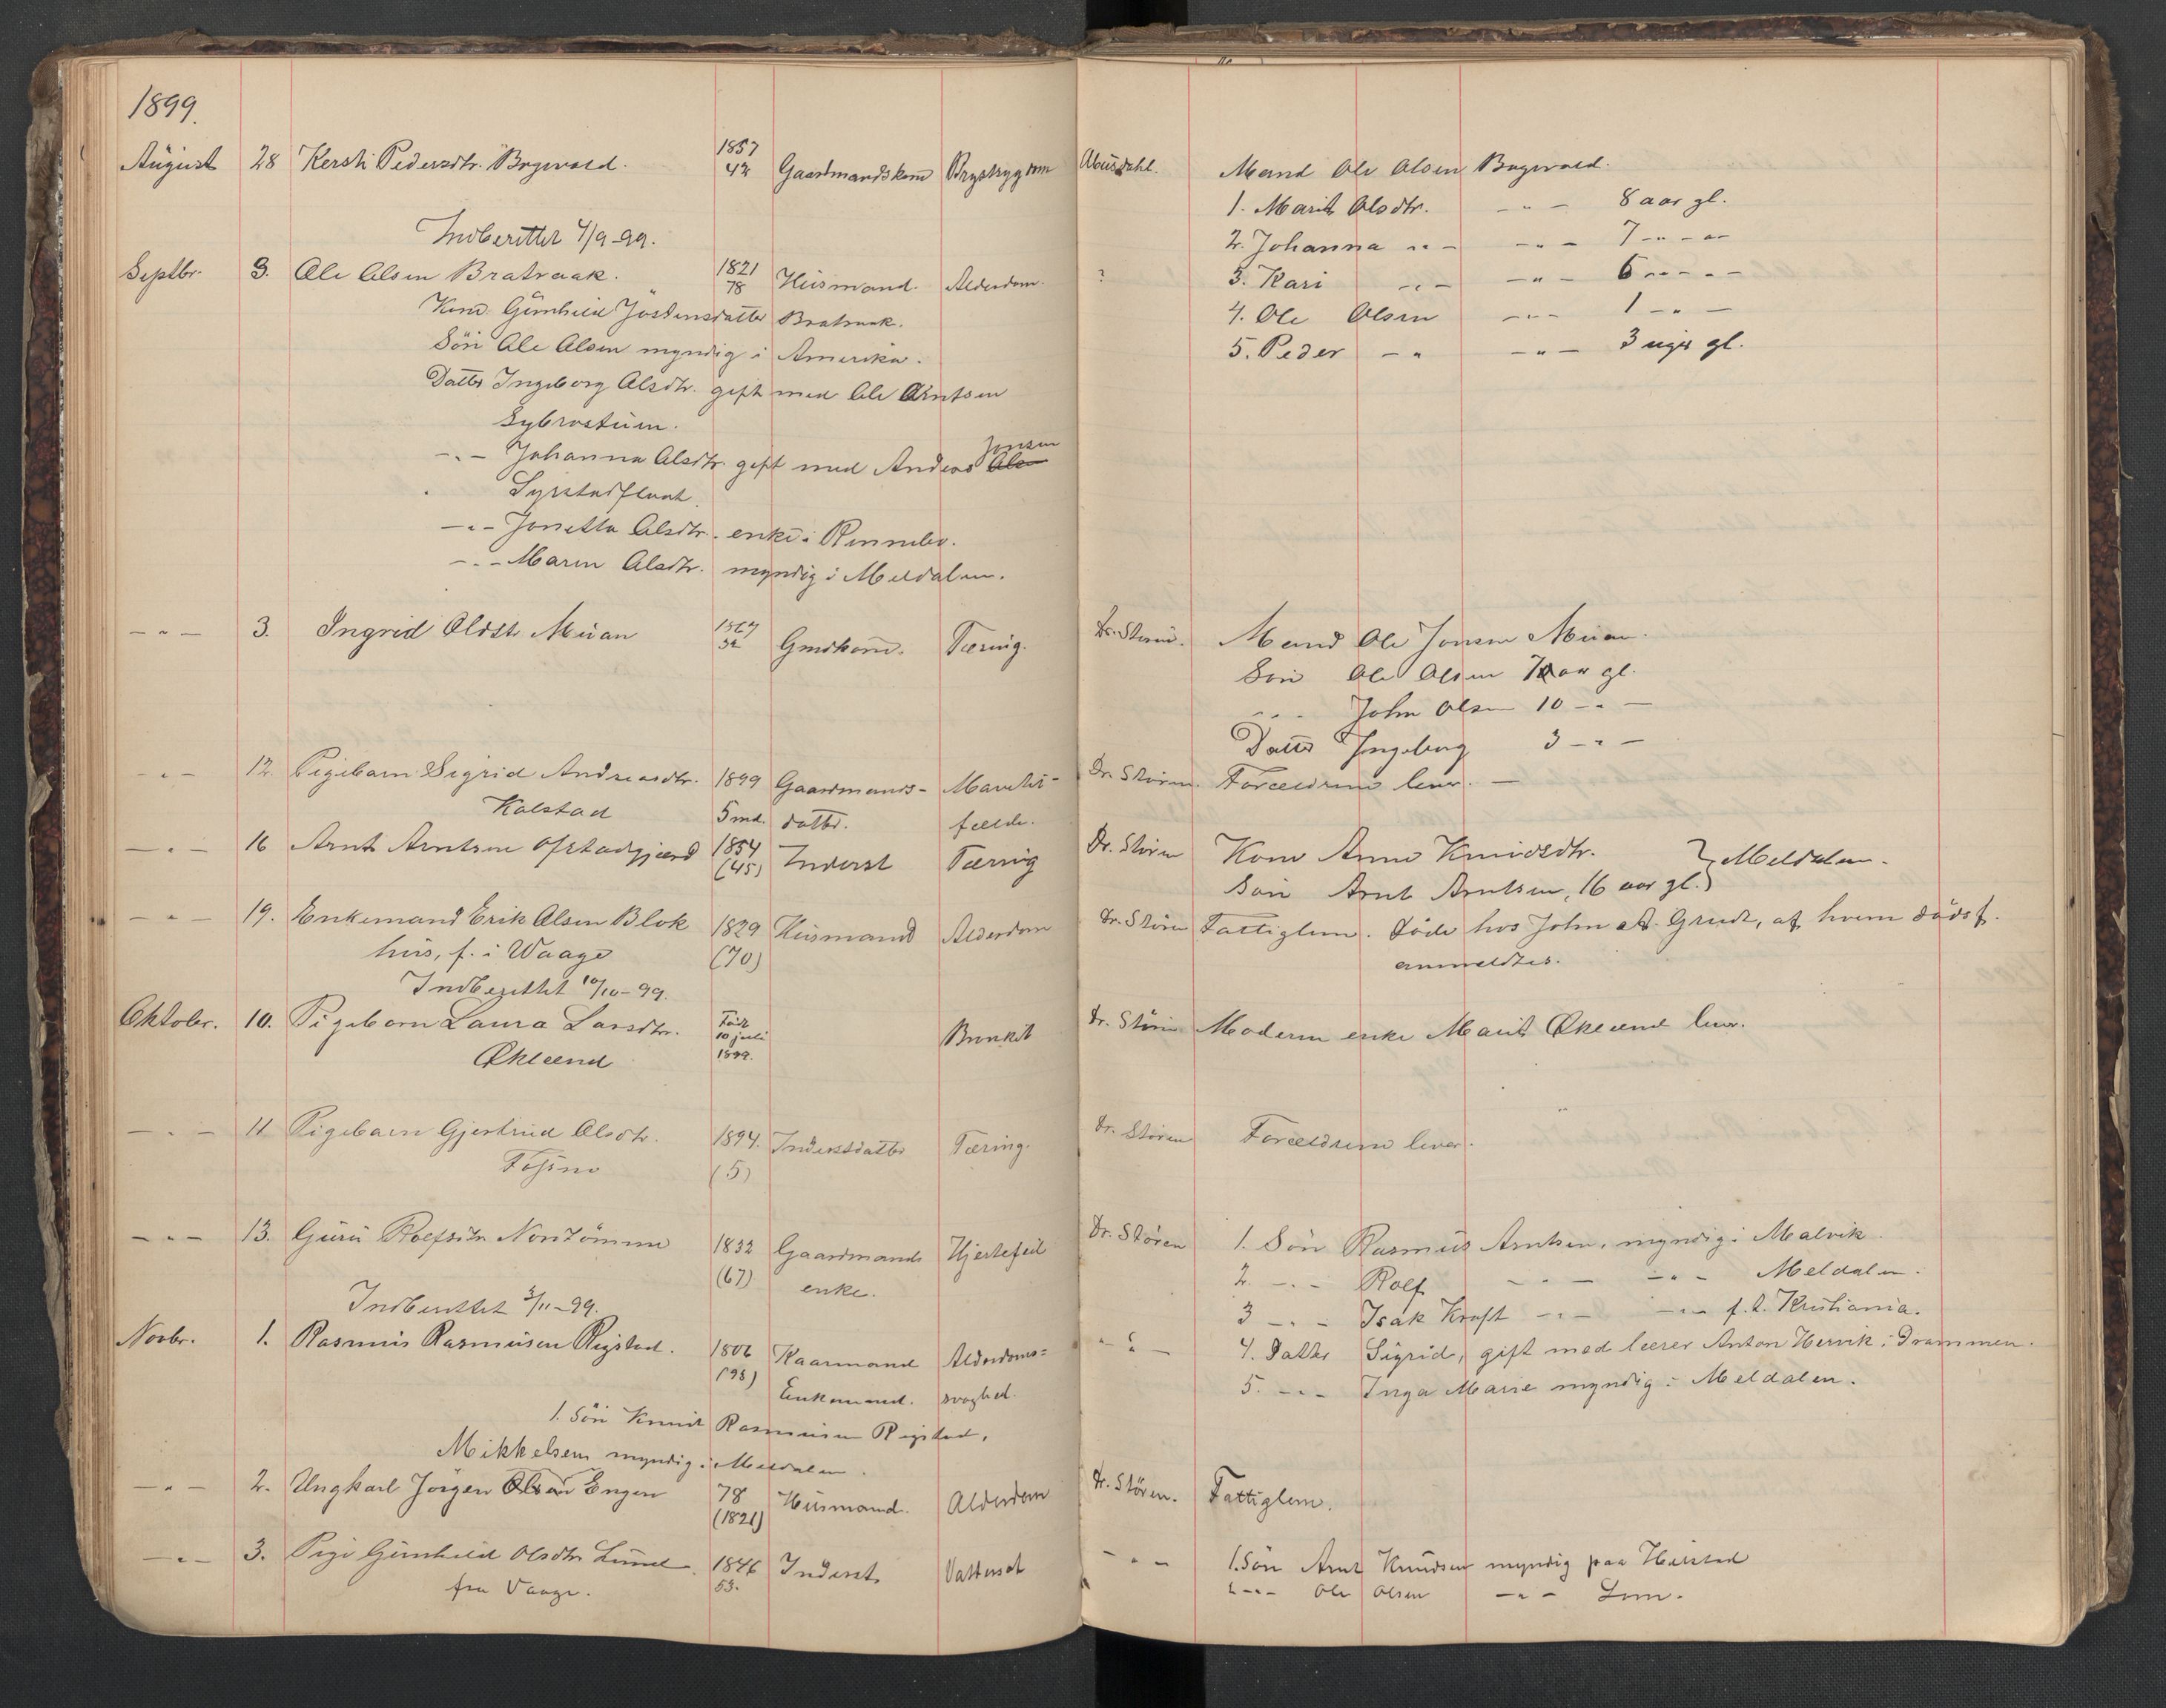 1899.
August 28 Kersti Pedersdtr. 1857 42 Gaardmandskone
Indberettet 4/9-99.
Septbr. 3. Ole Olsen Bratraak. 1821 78 Husmand. Alderdom. ?
Kone Gunhild Jostensdatter Bratraak.
Søn Ole Olsen myndig i Amerika.
Datter Ingeborg Olsdtr. gift med Ole Arntsen
-"- Johanna Olsdtr. gift med Anders Olsen Jonsen
Syrstadfloat
-"- Jonetta Olsdtr. enke i Rennebo.
-"- Maren Olsdtr. myndig i Meldalen.
-"- 3. Ingrid Olsdtr Muan 1867 32 Gmdkone. Tæring.
-"- 12. Pigebarn Sigrid Andreasdtr. 1899 Gaardmands-
Kalstad 5 md. datter.
-"- 16 Arnt Arntsen Ofstadgjærd 1854 (45) Inderst Tæring
-"- 19. Enkemand Erik Olsen Blok 1829 Husmand Alderdom
hus, f. i Waage (70)
Indberettet 10/10-99.
Oktober. 10. Pigebarn Laura Larsdtr. Født 10 juli 1899. Bronkit
Økleend
-"- 11 Pigebarn Gjertrud Olsdtr. 1894. Inderstdatter Tæring.
(5)
-"- 13. Guru Rolfsdtr 1832 Gaardmands Hjertefeil
(67) enke.
Indberettet 3/11-99.
Novbr. 1. Rasmus Rasmusen Rigstad. 1806 Kaarmand Alderdoms-
(93) Enkemand. svaghed.
1. Søn Knud Rasmusen Rigstad,
Mikkelsen myndig i Meldalen.
-"- 2. Ungkarl Jørgen Olsen Engen 78 Husmand. Alderdom
(1821)
-"- 3. Pige Gunhild Olsdtr Lund. 1846 Inderst Vattersot
fra Vaage. 53.
Mand Ole Olsen
1. Marit Olsdtr. -"- 8 aar gl.
2. Johanna -"- -"- 7 -"- -"-
3. Kari -"- -"- 6 -"- -"-
4. Ole Olsen -"- 1 -"-
5. Peder -"- -"- 3 uger gl.
Dr. Støren. Mand Ole Jonsen Muan.
Søn Ole Olsen 7 aar gl.
-"- John Olsen 10 -"-
Datter Ingeborg 3 -"-
Dr. Støren. Forældrene lever.
Dr. Støren Kone Anne Knudsdtr. } Meldalen.
Søn Arnt Arntsen, 16 aar gl.
Dr. Støren Fattiglem. Døde hos John Grut, af hvem dødsf.
anmeldtes.
Dr. Støren Moderen enke Marit Økleend lever.
Dr. Støren Forældrene lever.
Dr. Støren 1. Søn Rasmus Arntsen, myndig i Malvik.
2. -"- Rolf -"- -"- Meldalen.
3 -"- Isak Kraft -"- -"- f. t. Kristiania.
-"- 4. Datter Sigrid, gift med lærer Anton Hervik i Drammen.
5. -"- Inga Marie myndig i Meldalen.
Dr. Støren. Fattiglem.
-"- 1. Søn Arnt Knudsen myndig paa
2 -"- Ole Olsen -"- Lom.